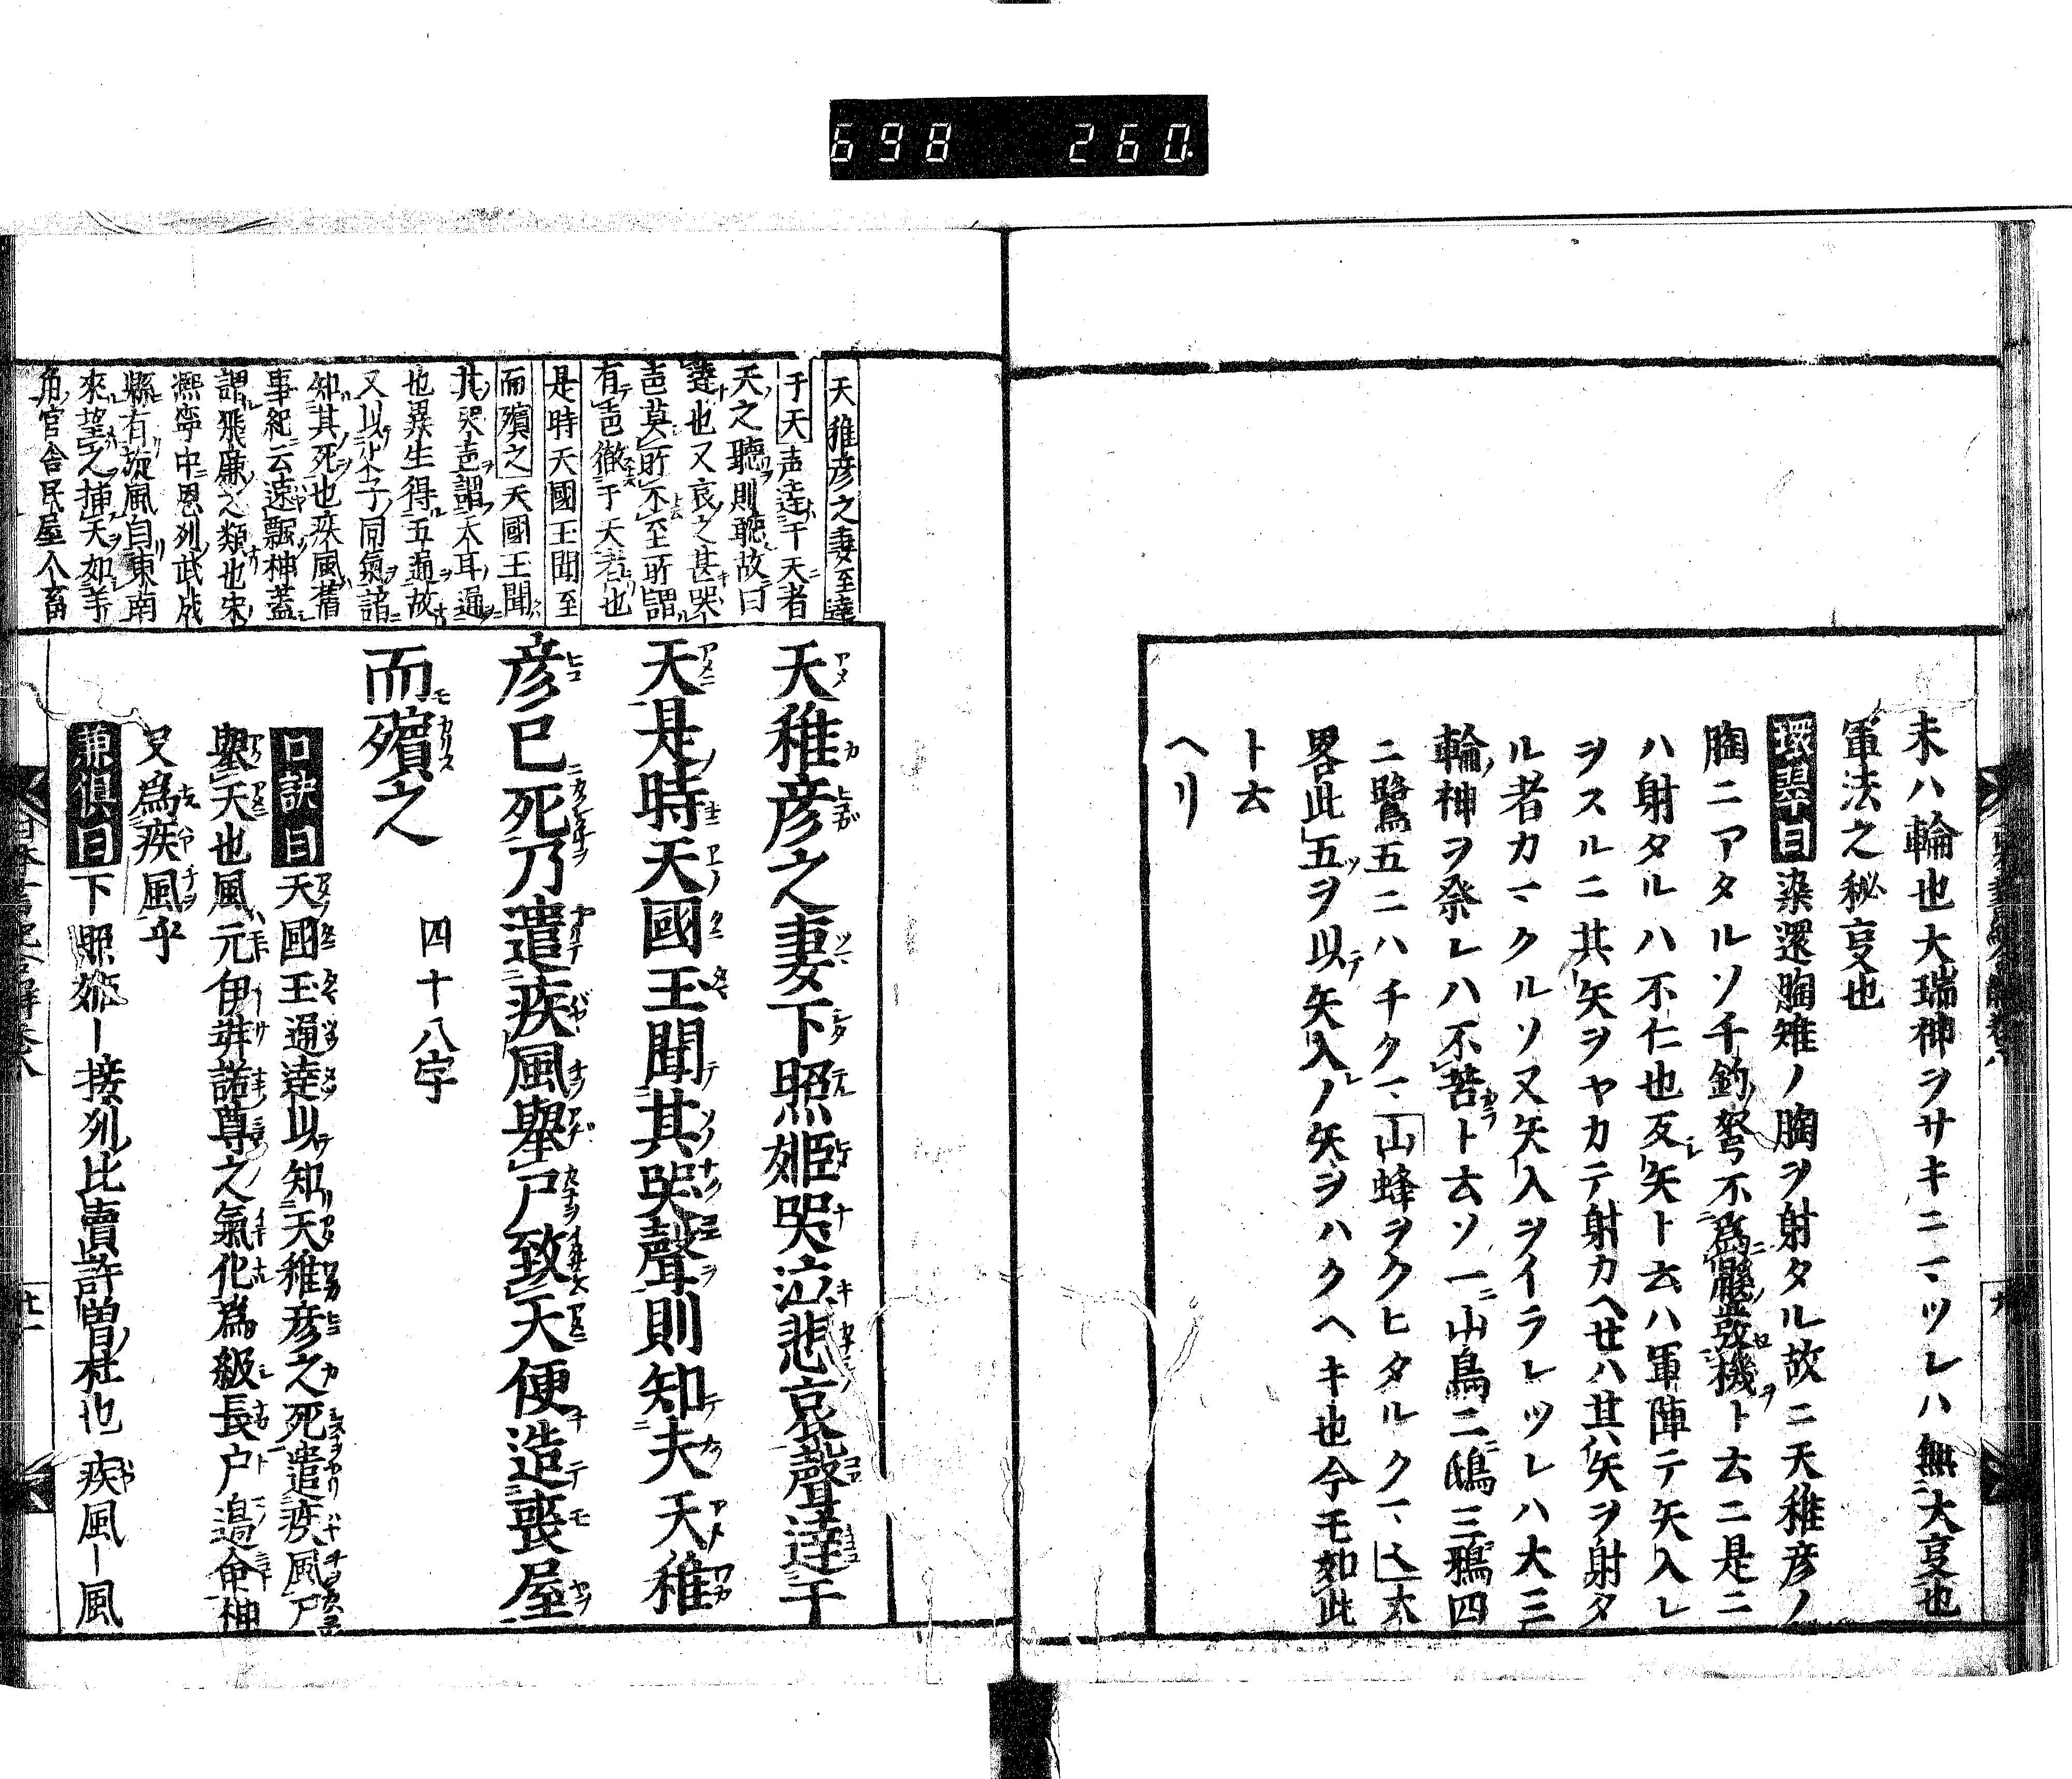 698 260
未ハ輪也大瑞神ヲサキニマツレハ無大事也
軍法之秘事也
環翠曰染還胸雉ノ胸ヲ射タル故ニ天稚彦ノ
胸ニアタルソ千鈞弩不為鼷発機ト云ニ是ニ
ハ射タルハ不仁也反矢ト云ハ軍陣テ矢入レ
ヲスルニ其矢ヲヤカテ射カヘせハ其矢ヲ射タ
ル者カマクルソ又矢入ヲイラレツレハ大三
輪神ヲ祭レハ不苦ト云ソ一山鳥二鴟三鴉四
ニ鷺五ニハチクマ山蜂ヲクヒタルクマ
畧此五ヲ以テ矢入ノ矢ヲハクヘキ也今モ如此
ト云
ヘリ
天稚彦之妻至達
于天声達于天者
天之聴則聴故曰
達也又哀之甚哭
声莫所不至所謂
有声徹于天者也
是時天國王聞至
而殯之天國王聞
其哭声謂天耳通
也異生得五通故
又以父子同氣諳
知其死也疾風舊
事紀云速飄神蓋
謂飛廉之類也宋
熈寧中恩列武成
縣有旋風自東南
來望之捕天如羊
角官舎民屋人畜
天稚彦之妻下照姫哭泣悲哀聲達于
天是時天國玉聞其哭聲則知夫天稚
彦已死乃遣疾風擧尸致天便造喪屋
而殯之 四十八字
口訣曰天國玉通達以知天稚彦之死遣疾風尸
擧天也風元伊弉諾尊之氣化為級長戸邉命神
又為疾風乎
兼倶曰下照姫ー接列比賣許曽社也疾風ー風